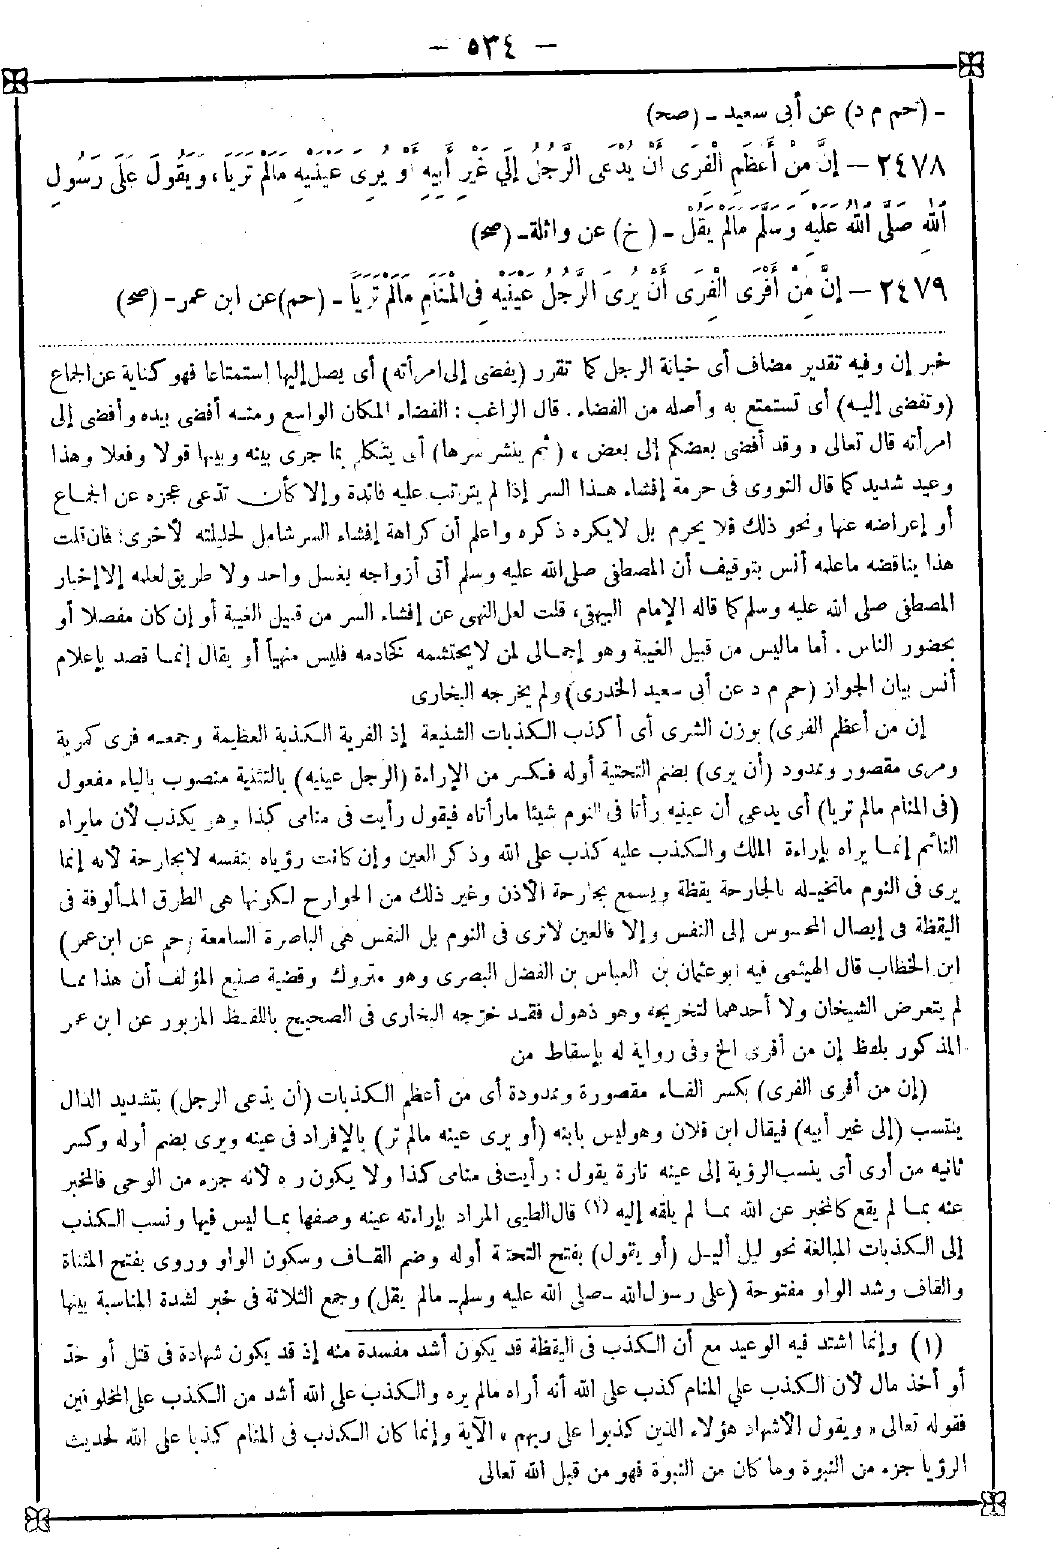 – ٥٣٤ –
- (حم م د) عن أبى سعيد - (صح)
٢٤٧٨ – إِنَّ مِنْ أَعْظَمِ الْفِرَى أَنْ يُدْعَى الرَّجُلُ إِلَى غَيْرِ أَبِيهِ أَوْ يُرِى عَيْنَيْهِ مَالَمْ تَرَيَا، وَيَقُولَ عَلَى رَسُولِ
اللهِ صَلَّى اللهُ عَلَيْهِ وَسَلَّمَ مَالَمْ يَقُلْ - (خ) عن واثلة - (صح)
٢٤٧٩ – إِنَّ مِنْ أَفْرَى الْفِرَى أَنْ يُرِىَ الرَّجُلُ عَيْنَيْهِ فِى الْمَنَامِ مَالَمْ تَرَيَا - (حم) عن ابن عمر - (صح)
خبر إن وفيه تقدير مضاف أى خيانة الرجل كما تقرر (يفضى إلى امرأته) أى يصل إليها استمتاعا فهو كناية عن الجماع
(وتفضى إليه) أى تستمتع به وأصله من الفضاء . قال الراغب : الفضاء المكان الواسع ومنه أفضى بيده وأفضى إلى
امرأته قال تعالى « وقد أفضى بعضكم إلى بعض » (ثم ينشر سرها) أى يتكلم بما جرى بينه وبينها قولا وفعلا وهذا
وعيد شديد كما قال النووى فى حرمة إفشاء هذا السر إذا لم يترتب عليه فائدة وإلا كأن تدعى عجزه عن الجماع
أو إعراضه عنها ونحو ذلك فلا يحرم بل لا يكره ذكره واعلم أن كراهة إفشاء السر شامل لحليلته لأخرى؛ فان قلت
هذا يناقضه ماعلمه أنس بتوقيف أن المصطفى صلى الله عليه وسلم أتى أزواجه بغسل واحد ولا طريق لعلمه إلا إخبار
المصطفى صلى الله عليه وسلم كما قاله الإمام البيهقى، قلت لعل النهى عن إفشاء السر من قبيل الغيبة أو إن كان مفصلا أو
بحضور الناس . أما ماليس من قبيل الغيبة وهو إجمالى لمن لايحتشمه كخادمه فليس منهيا أو يقال إنما قصد بإعلام
أنس بيان الجواز (حم م د عن أبى سعيد الخدرى) ولم يخرجه البخارى
إن من أعظم الفرى) بوزن الشرى أى أكذب الكذبات الشنيعة إذ الفرية الكذبة العظيمة وجمعه فرى كمرية
ومرى مقصور وممدود (أن يرى) بضم التحتية أوله فكسر من الإراءة (الرجل عينيه) بالتثنية منصوب بالياء مفعول
(فى المنام مالم تريا) أى يدعى أن عينيه رأتا فى النوم شيئا مارأتاه فيقول رأيت فى منامى كذا وهو يكذب لأن مايراه
النائم إنما يراه بإراءة الملك والكذب عليه كذب على الله وذكر العين وإن كانت رؤياه بنفسه لابجارحة لأنه إنما
يرى فى النوم ماتخيله بالجارحة يقظة ويسمع بجارحة الأذن وغير ذلك من الجوارح لكونها هى الطرق المألوفة فى
اليقظة فى إيصال المحسوس إلى النفس وإلا فالعين لاترى فى النوم بل النفس هى الباصرة السامعة (حم عن ابن عمر)
ابن الخطاب قال الهيثمى فيه أبو عثمان بن العباس بن الفضل البصرى وهو متروك وقضية صنيع المؤلف أن هذا مما
لم يتعرض الشيخان ولا أحدهما لتخريجه وهو ذهول فقد خرّجه البخارى فى الصحيح باللفظ المزبور عن ابن عمر
المذكور بلفظ إن من أفرى الخ وفى رواية له بإسقاط من
(إن من أفرى الفرى) بكسر الفاء مقصورة وممدودة أى من أعظم الكذبات (أن يدّعى الرجل) بتشديد الدال
ينتسب (إلى غير أبيه) فيقال ابن فلان وهو ليس بابنه (أو يرى عينه مالم تر) بالإفراد فى عينه ويرى بضم أوله وكسر
ثانيه من أرى أى ينسب الرؤية إلى عينه تارة يقول : رأيت فى منامى كذا ولا يكون رآه لأنه جزء من الوحى فالمخبر
عنه بما لم يقع كالمخبر عن الله بما لم يلقه إليه (١) قال الطيبى المراد بإراءته عينه وصفها بما ليس فيها ونسب الكذب
إلى الكذبات المبالغة نحو ليل أليل (أو يقول) بفتح التحتية أوله وضم القاف وسكون الواو وروى بفتح المثناة
والقاف وشد الواو مفتوحة (على رسول الله - صلى الله عليه وسلم - مالم يقل) وجمع الثلاثة فى خبر لشدة المناسبة بينها
(١) وإنما اشتد فيه الوعيد مع أن الكذب فى اليقظة قد يكون أشد مفسدة منه إذ قد يكون شهادة فى قتل أو حدّ
أو أخذ مال لأن الكذب على المنام كذب على الله أنه أراه مالم يره والكذب على الله أشد من الكذب على المخلوقين
فقوله تعالى « ويقول الأشهاد هؤلاء الذين كذبوا على ربهم » الآية وإنما كان الكذب فى المنام كذبا على الله لحديث
الرؤيا جزء من النبوة وما كان من النبوة فهو من قبل الله تعالى